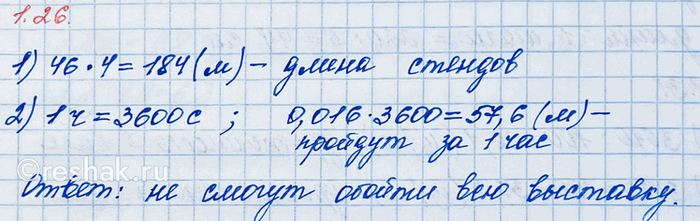 1.26.
1) 46·4=184(м) – длина стендов
2) 1ч=3600с ; 0,016·3600=57,6(м)–
пройдут за 1 час
Ответ: не смогут обойти всю выставку.
reshak.ru